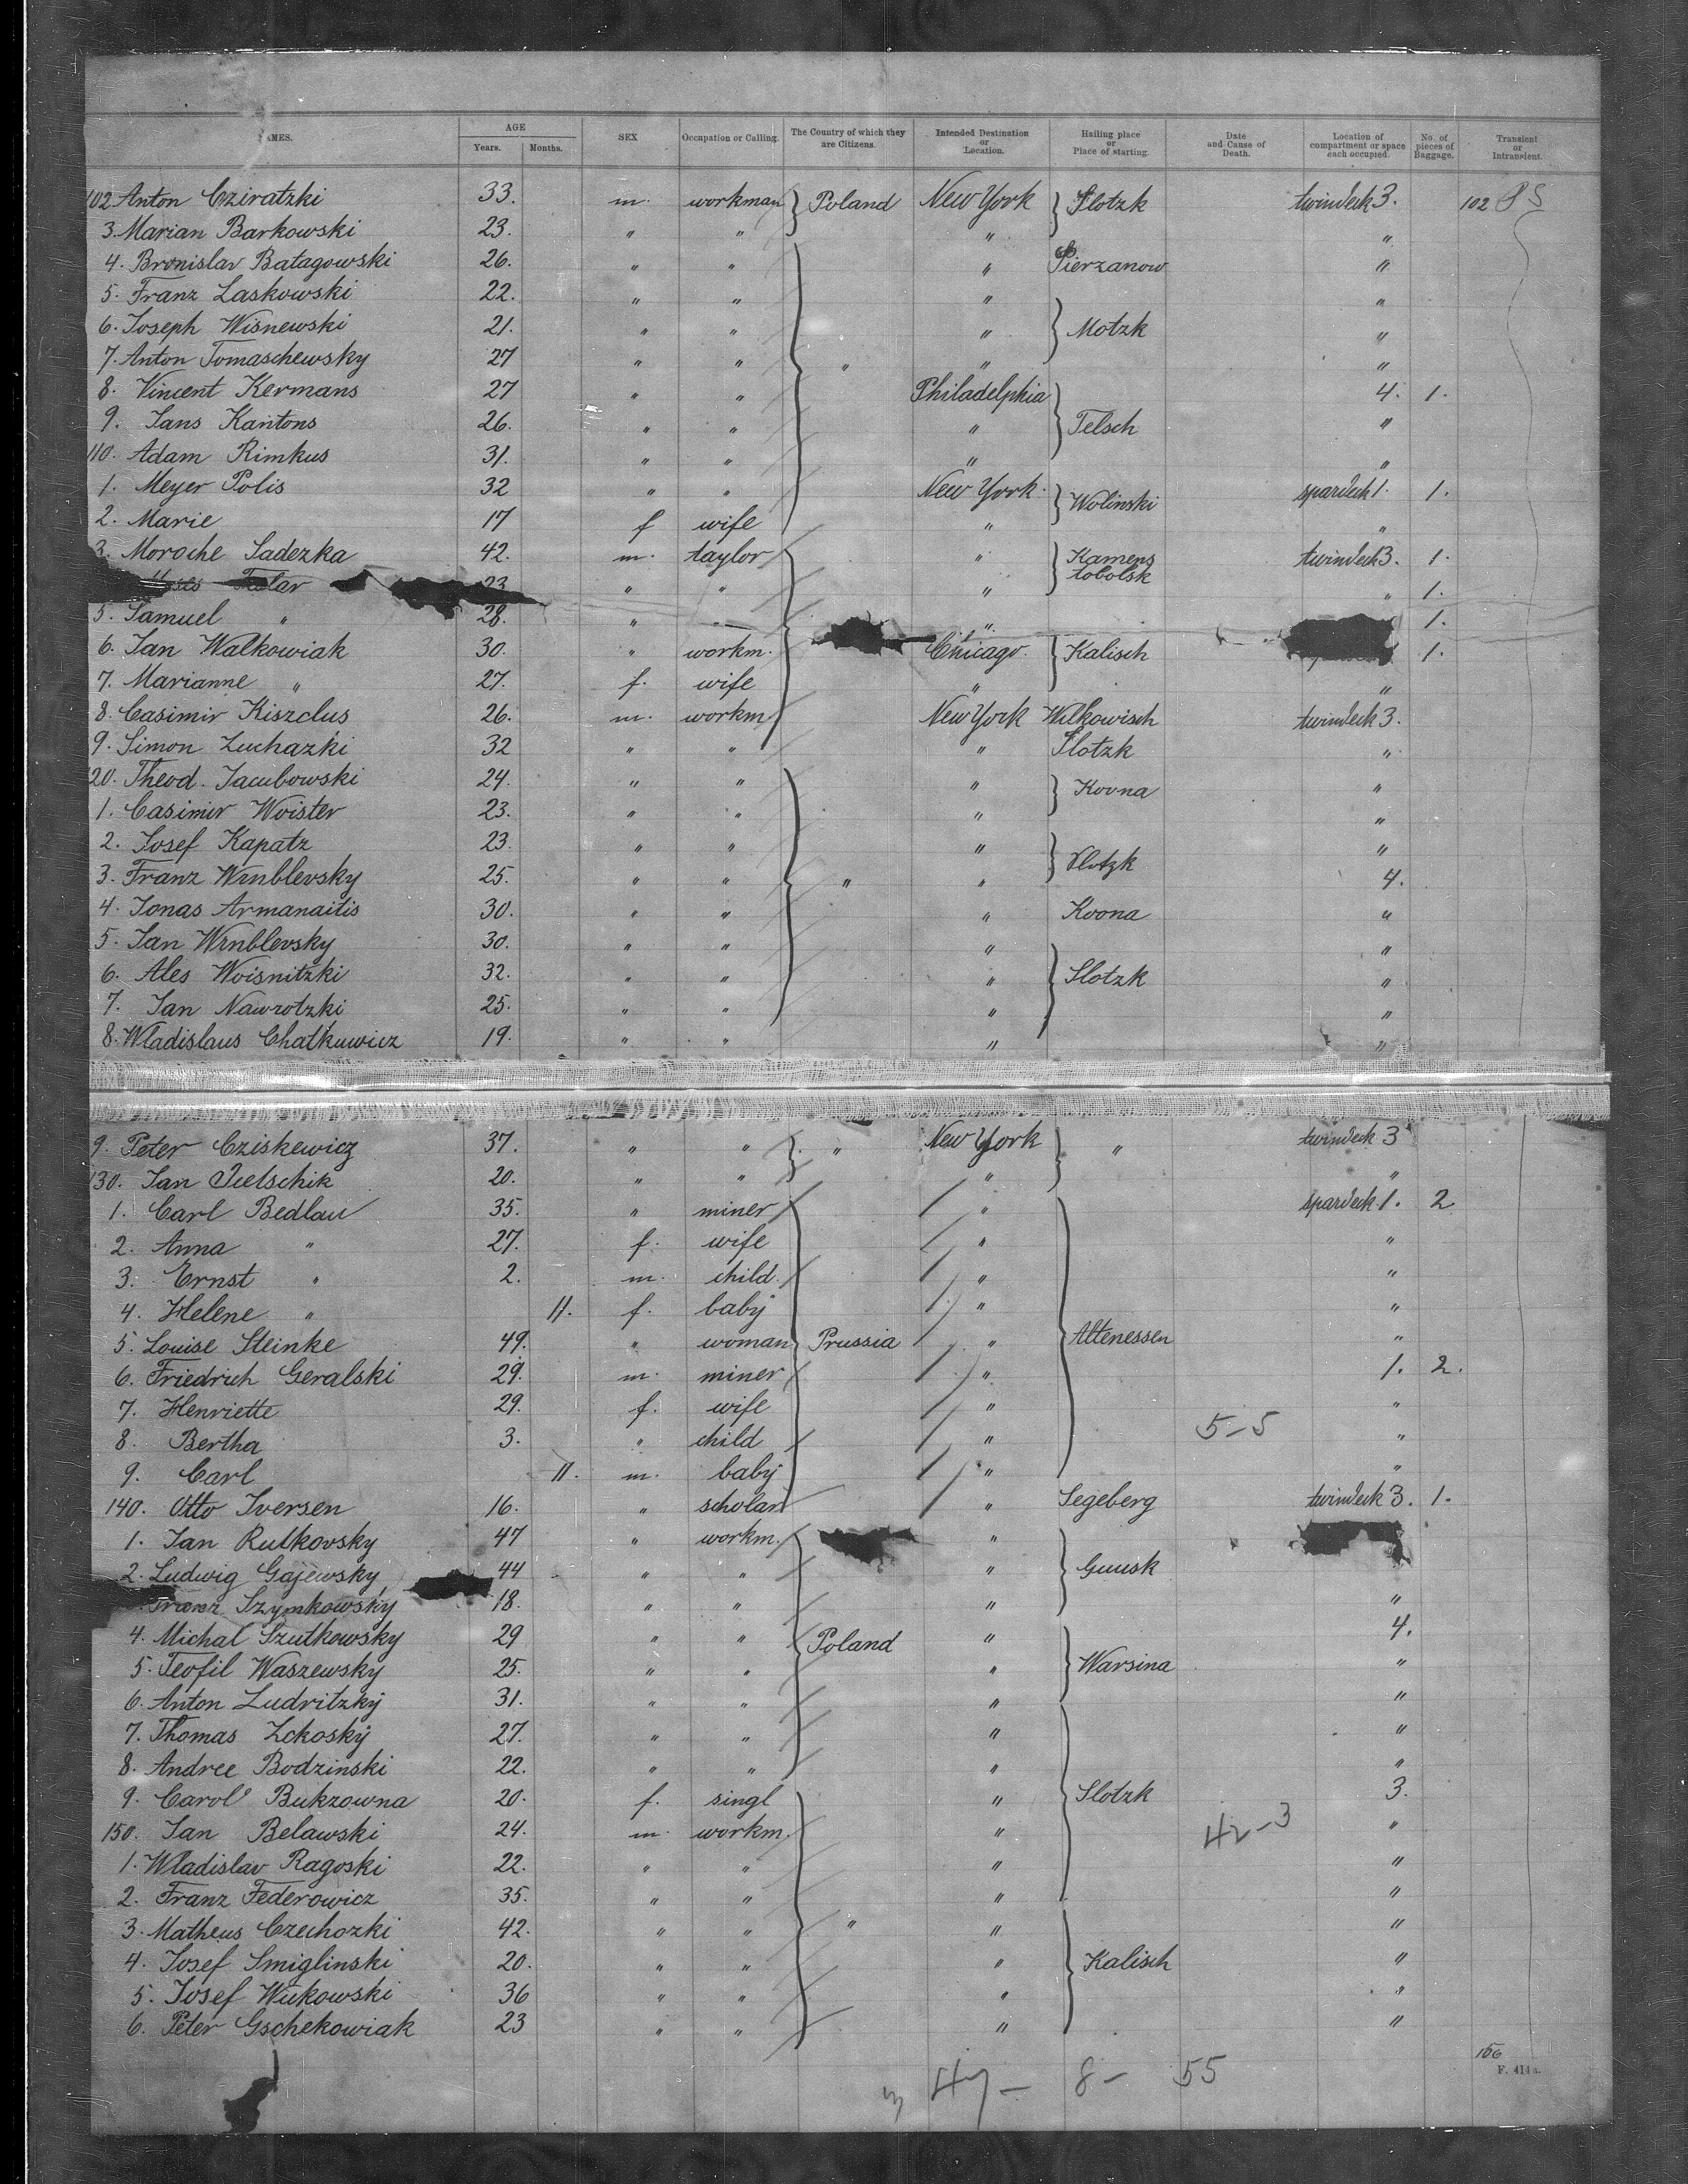 NAMES. AGE Years. Months. SEX Occupation or Calling. The Country of which they are Citizens. Intended Destination or Location. Hailing place or Place of starting. Date and Cause of Death. Location of compartment or space each occupied. No. of pieces of Baggage. Transient or Intransient.
102 Anton Cziratzki 33. m. workman } Poland New York } Slotzk twindeck 3. 102
3. Marian Barkowski 23. " " " "
4. Bronislav Batagowski 26. " " " Sierzanow "
5. Franz Laskowski 22. " " " "
6. Joseph Wisnewski 21. " " " } Motzk "
7. Anton Tomaschewsky 27 " " " " "
8. Vincent Kermans 27 " " Philadelphia 4. 1.
9. Jans Kantons 26. " " " } Telsch "
110. Adam Rimkus 31. " " " "
1. Meyer Polis 32 " " New York. } Wolinski spardeck 1. 1.
2. Marie 17 f wife " "
3. Moroche Sadezka 42. m. taylor " } Kamens tobolsk twindeck 3. 1.
23 " " " " 1.
5. Samuel " 28. " " " 1.
6. Jan Walkowiak 30. " workm. Chicago. } Kalisch 1.
7. Marianne " 27. f. wife " "
8. Casimir Kiszclus 26. m. workm New York Wilkowisch twindeck 3.
9. Simon Zuchazki 32 " " " Slotzk "
120. Theod. Jacubowski 24. " " " } Kovna "
1. Casimir Woister 23. " " " "
2. Josef Kapatz 23. " " " } Slotzk "
3. Franz Wrublevsky 25. " " " " 4.
4. Jonas Armanaitis 30. " " " Kovna "
5. Jan Wrublevsky 30. " " " "
6. Ales Woisnitzki 32. " " " } Slotzk "
7. Jan Nawrotzki 25. " " " "
8. Wladislaus Chatkuwicz 19. " " " "
9. Peter Cziskewicz 37. " " } " New York } " twindeck 3
130. Jan 20. " " " "
1. Carl Bedlau 35. " miner " spardeck 1. 2
2. Anna " 27. f. wife " "
3. Ernst " 2. m. child. " "
4. Helene " 11. f. baby " "
5. Louise Steinke 49. " woman } Prussia " } Altenessen "
6. Friedrich Geralski 29. m. miner " 1. 2.
7. Henriette 29. f. wife " "
8. Bertha 3. " child " 5-5 "
9. Carl 11. m. baby " "
140. Otto Iversen 16. " scholar " Segeberg twindeck 3. 1.
1. Jan Rutkovsky 47 " workm. "
2. Ludwig Gajewsky 44 " " " } Guusk
Franz Szymkowsky 18. " " " "
4. Michal Szutkowsky 29 " " Poland " 4.
5. Teofil Waszewsky 25. " " " } Warsina "
6. Anton Ludritzky 31. " " " "
7. Thomas Zckosky 27. " " " "
8. Andree Bodzinski 22. " " " "
9. Carol Bukzowna 20. f. singl " } Slotzk 3.
150. Jan Belawski 24. m. workm. " 42-3 "
1. Wladislav Ragoski 22. " " " "
2. Franz Federowicz 35. " " " "
3. Matheus Czechozki 42. " " " " "
4. Josef Smiglinski 20. " " " } Kalisch "
5. Josef Wukowski 36 " " " "
6. Peter Gschekowiak 23 " " " "
156
F. 411a.
47- 8- 55